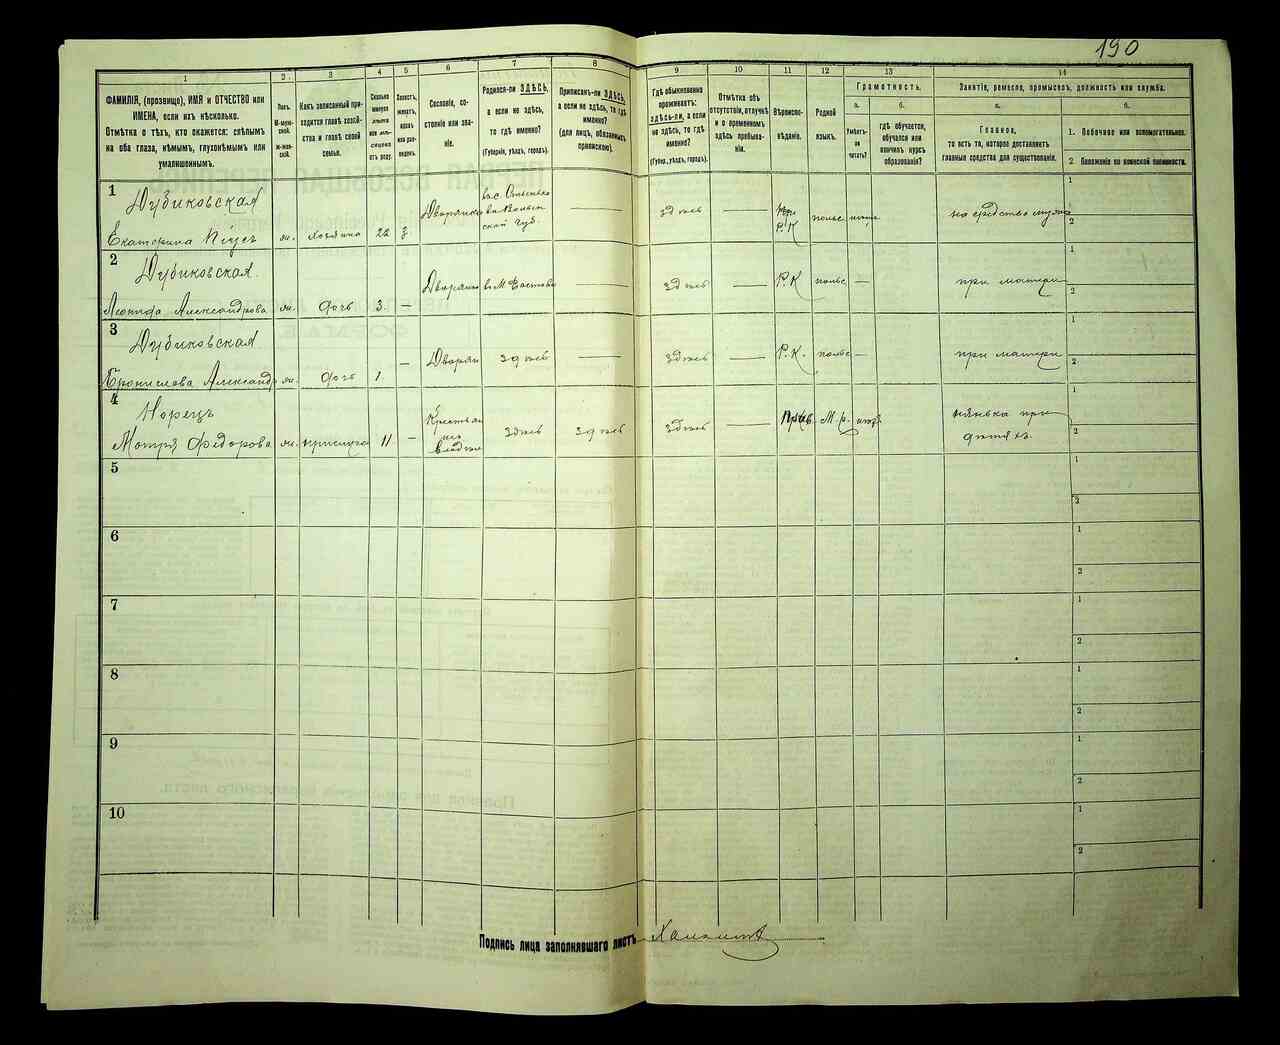 190
1
2.
3
4
5
6
7
8
ФАМИЛІЯ, (прозвище), ИМЯ и ОТЧЕСТВО или
ИМЕНА, если ихъ нѣсколько.
Отмѣтка о тѣхъ, кто окажется: слѣпымъ
на оба глаза, нѣмымъ, глухонѣмымъ или
умалишеннымъ.
Полъ.
М-мужской.
Ж-женскій.
Какъ записанный приходится
главѣ хозяйства
и главѣ своей
семьи.
Сколько
минуло
лѣтъ
или мѣсяцевъ
отъ роду.
Холостъ,
женатъ,
вдовъ
или разведенъ.
Сословіе, состояніе
или званіе.
Родился-ли ЗДѢСЬ,
а если не здѣсь,
то гдѣ именно?
(Губернія, уѣздъ, городъ).
Приписанъ-ли ЗДѢСЬ,
а если не здѣсь, то гдѣ
именно?
(для лицъ, обязанныхъ
припискою).
9
10
11
12
13
14
Гдѣ обыкновенно
проживаетъ:
здѣсь-ли, а если
не здѣсь, то гдѣ
именно?
(Губер., уѣздъ, городъ).
Отмѣтка объ
отсутствіи, отлучкѣ
и о временномъ
здѣсь пребываніи.
Вѣроисповѣданіе.
Родной
языкъ.
Грамотность.
а.
б.
Умѣетъ-ли
читать?
гдѣ обучается,
обучался или
кончилъ курсъ
образованія?
Занятіе, ремесло, промыселъ, должность или служба.
а.
б.
Главное,
то есть то, которое доставляетъ
главныя средства для существованія.
1. Побочное или вспомогательное.
2 Положеніе по воинской повинности.
1
Дубиковская
Екатерина
ж.
хозяйка
22
з
Дворянка
здѣсь
Р.К
польс
на средства мужа
1
2
2
Дубиковская
Леонида Александрова
ж.
дочь
3.
—
Дворянка
въ М. Фастовѣ
здѣсь
Р.К
польс
—
при матери
1
2
3
Дубиковская
Бронислава Александр
ж.
дочь
1.
—
Дворян
здѣсь
здѣсь
Р.К.
польс
—
при матери
1
2
4
Норецъ
Мотря Федорова
ж.
прислуга
11
—
Крестьян
изъ
владѣл
здѣсь
здѣсь
здѣсь
Прав.
М.р.
нянька при
дѣтяхъ
1
2
5
1
2
6
1
2
7
1
2
8
1
2
9
1
2
10
1
2
Подпись лица заполнявшаго листъ